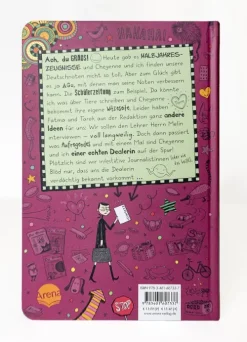 HAHAHA!
Ach, du GRAUS! Heute gab es HALBJAHRES-
ZEUGNISSE und Cheyenne und ich finden unsere
Deutschnoten nicht so toll. Aber zum Glück gibt
es ja AGs, mit denen man seine Noten verbessern
kann. Die Schülerzeitung zum Beispiel. Da könnte
ich was über Tiere schreiben und Cheyenne
bekommt ihre eigene Leider haben
Fatma und Tarek aus der Redaktion ganz andere
Ideen für uns. Wir sollen den Lehrer Herrn
interviewen – voll langweilig. Doch dann passiert
was Aufregendes und mit einem Mal sind Cheyenne
und ich einer echten Dealerin auf der Spur!
Plötzlich sind wir
Bild nur, dass uns die Dealerin
verdächtig bekannt vorkommt ...
Arena